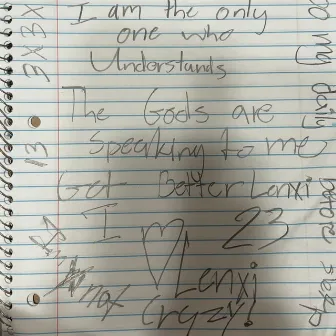 I am the only
one who
Understands
The Gods are
Speaking to me
Get Better Lenxi
I 23
Lenxi
not Crazy!
3X3X3X
13
my daily